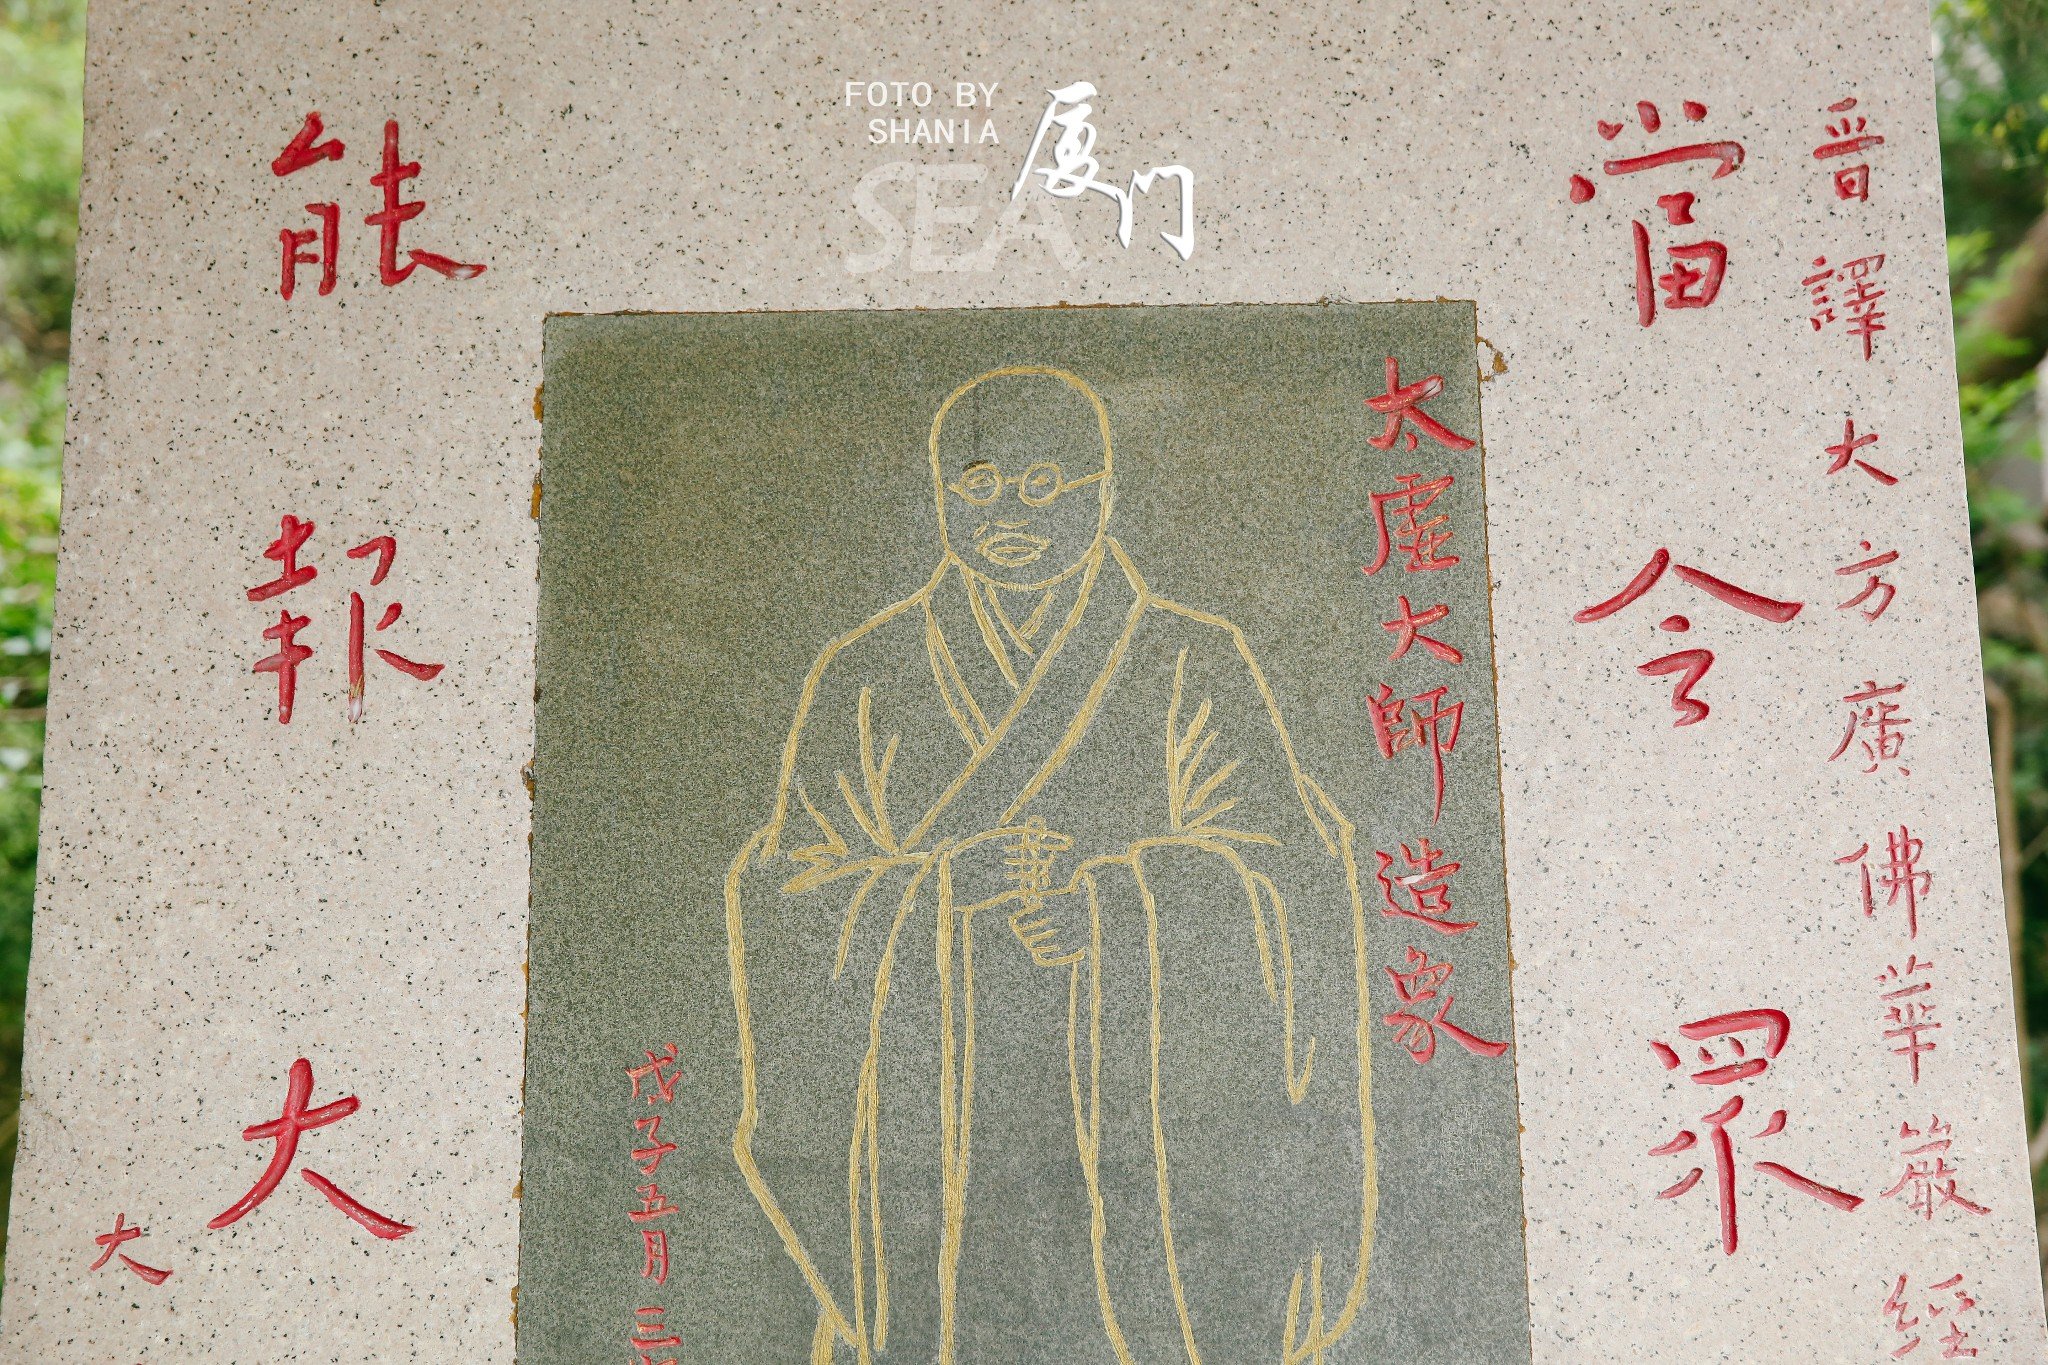 FOTO BY
SHANIA
SEA
厦门
晋譯大方廣佛華嚴經
當令眾
太虛大師造象
戊子五月三
能報大
大